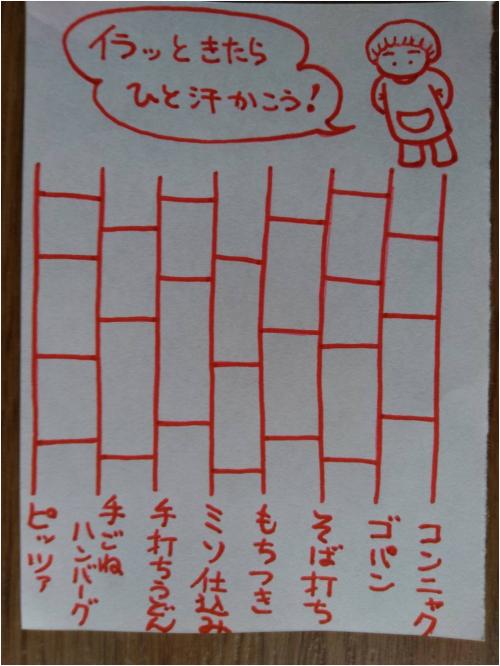 イラッときたら
ひと汗かこう!
ピッツァ
手ごね
ハンバーグ
手打ちうどん
ミソ仕込み
もちつき
そば打ち
ゴパン
コンニャク